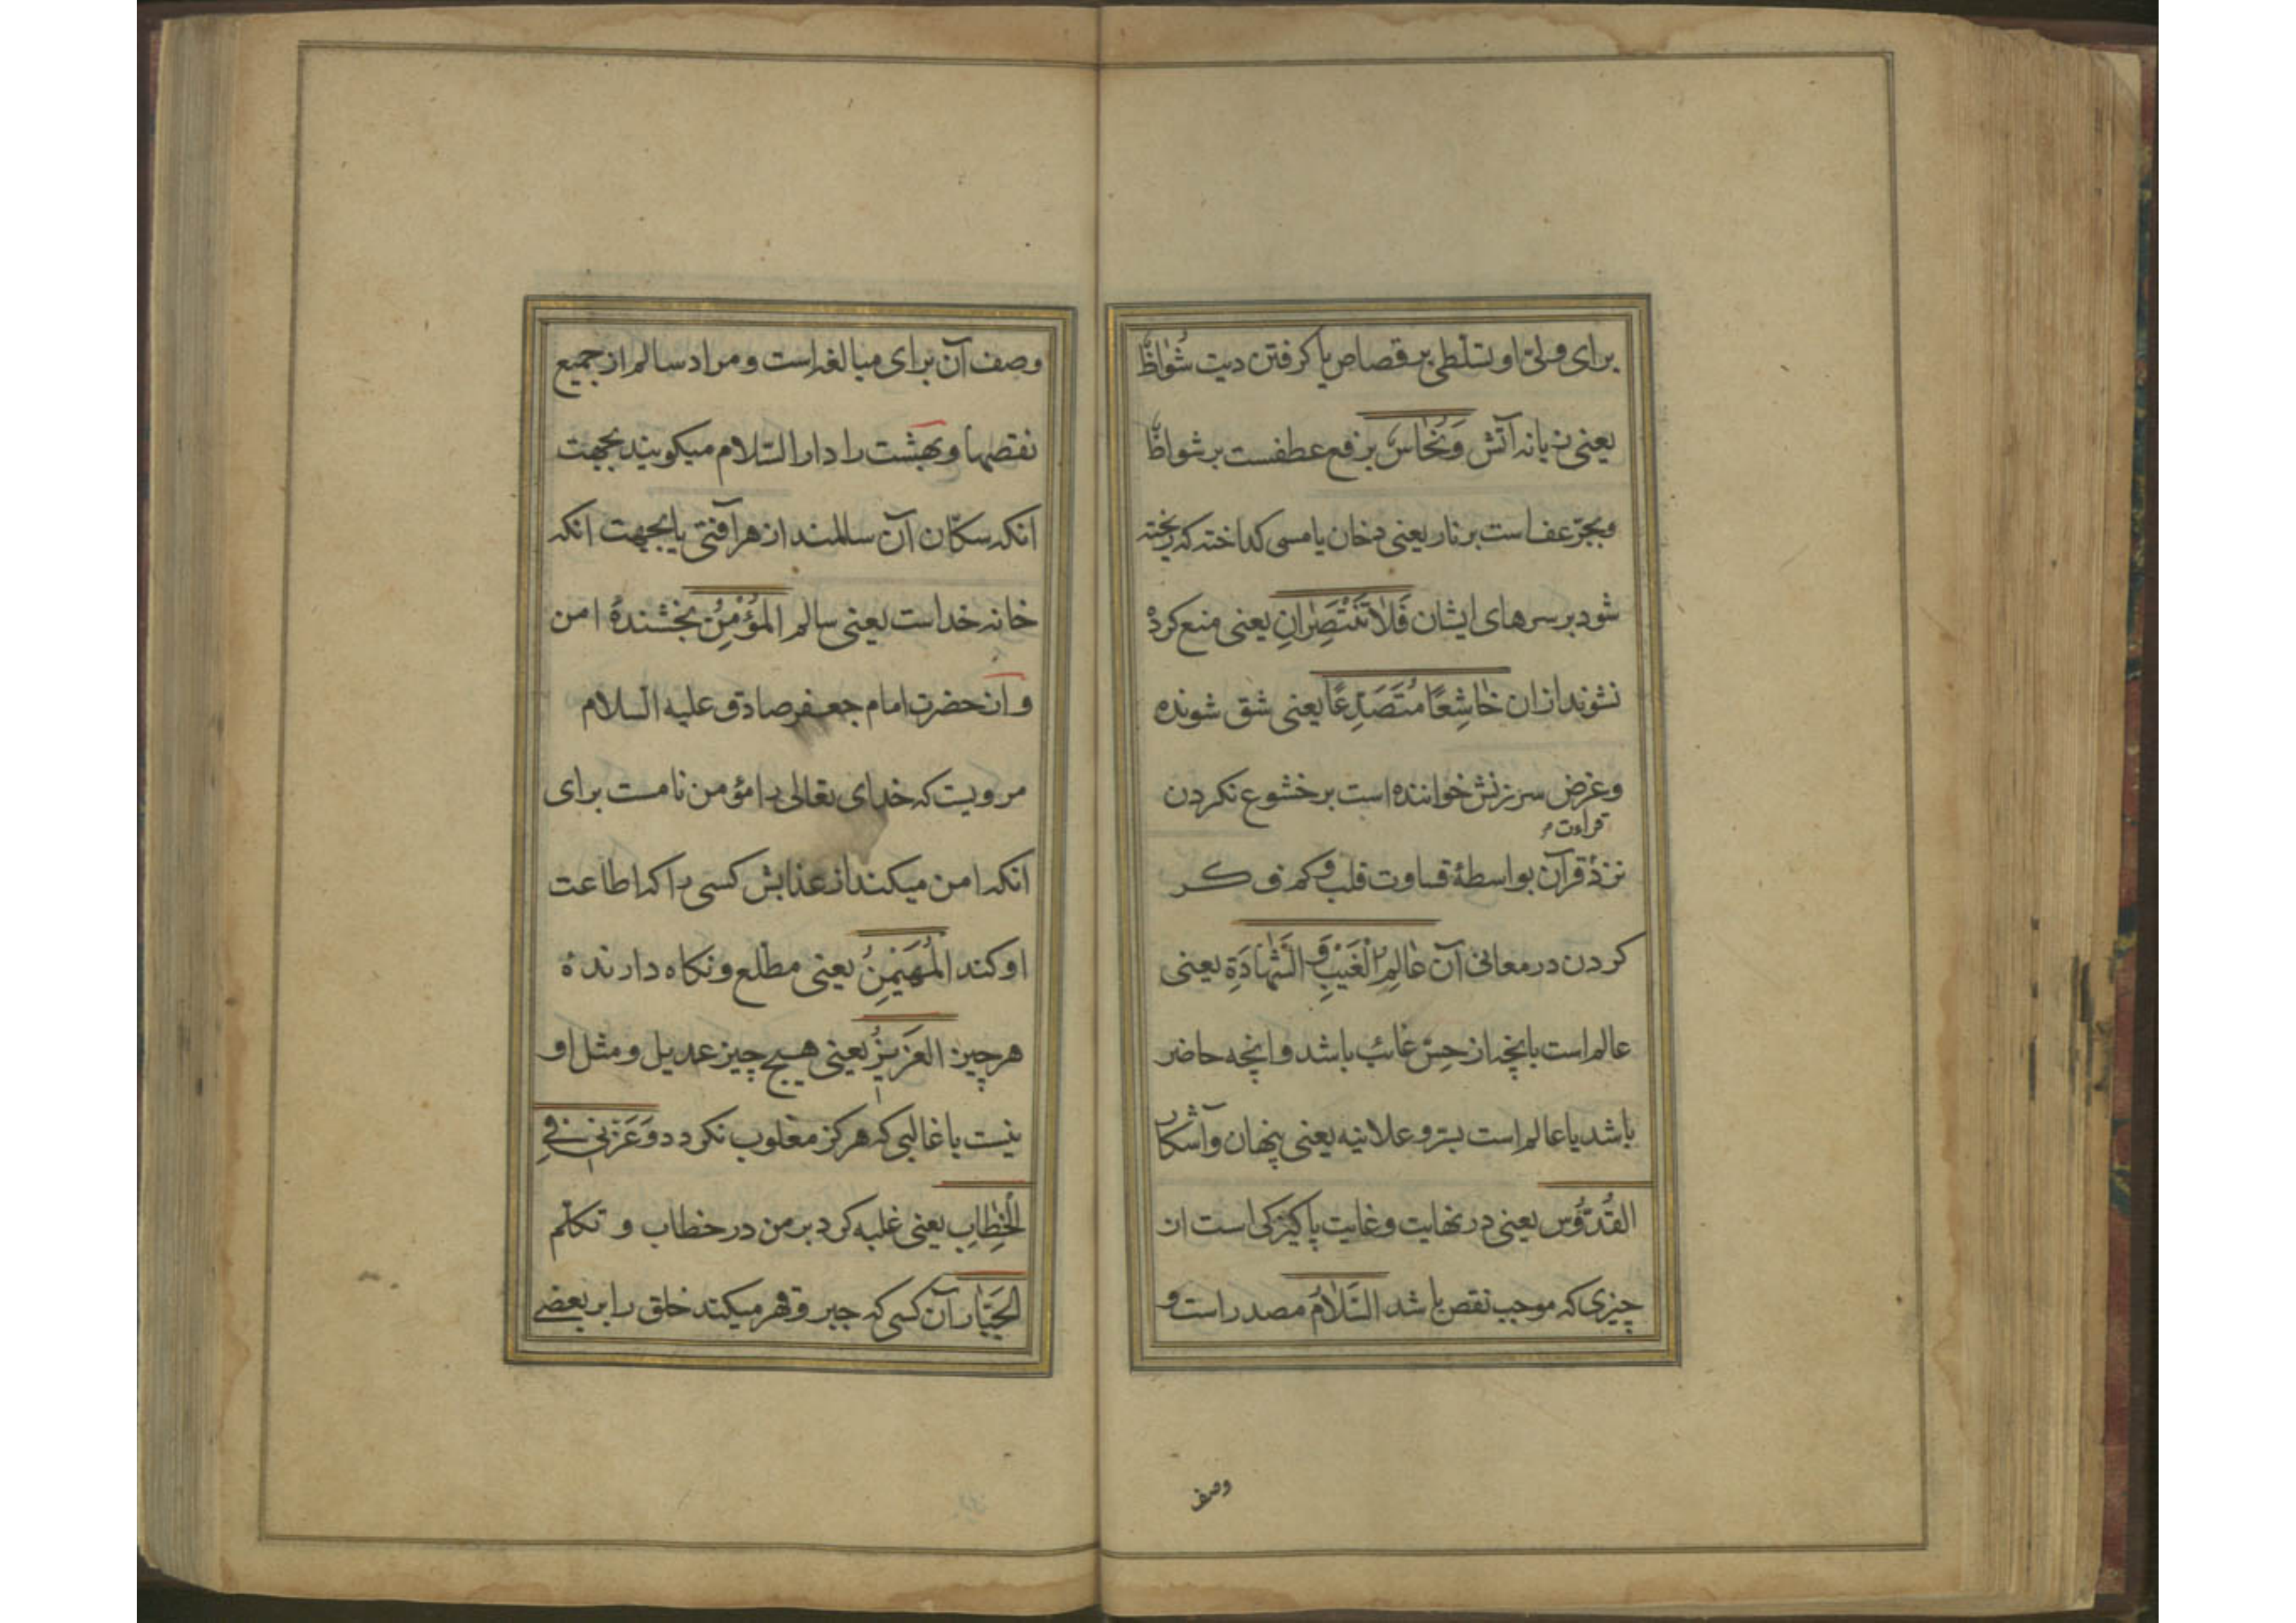 برای ولیّ او تسلّطی بر قصاص یا کرفتن دیت شُواظٌ
یعنی زبانه آتش وَنُحٰاسٌ برفع عطفست بر شواظٌ
وبجرّ عفاست بر نار یعنی دخان یا مسی کداخته که ریخته
شود بر سرهای ایشان فَلاٰ تَنْتَصِرٰانِ یعنی منع کرده
نشوند ازان خٰاشِعًا مُتَصَدِّعًا یعنی شق شونده
وغرض سرزنش خواننده است بر خشوع نکردن
قراءت م
نزد قرآن بواسطهٔ قساوت قلب وکم فکر
کردن در معانی آن عٰالِمِ الْغَیْبِ وَ الشَّهٰادَةِ یعنی
عالم است بانچه از حسّ غائب باشد وانچه حاضر
باشد یا عالم است بسرّ و علانیه یعنی پنهان وآشکار
القُدُّوس یعنی در نهایت وغایت پاکیزکی است از
چیزی که موجب نقص باشد السَّلاٰمُ مصدر است و
وصف
وصف آن برای مبالغه است و مراد سالم از جمیع
نقصها و بهشت را دار السّلام میکویند بجهت
انکه سکّان آن سالمند از هر آفتی یا بجهت انکه
خانه خداست یعنی سالم المُؤْمِنُ بخشندهٔ امن
وازحضرت امام جعفر صادق علیه السلام
مرویست که خدای تعالی را مؤمن نامست برای
انکه امن میکند از عذابش کسی را که اطاعت
او کند المُهَیْمِنُ یعنی مطّلع و نکاه دارندهٔ
هر چیز العَزیزُ یعنی هیچ چیز عدیل و مثل او
نیست یا غالبی که هرکز مغلوب نکردد وَعَزَّنی فِی
الْخِطٰابِ یعنی غلبه کرد بر من در خطاب و تکلّم
الجَبّٰار آن کسی که جبر و قهر میکند خلق را بر بعضی